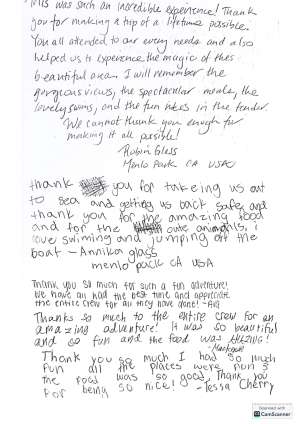 This was such an incredible experience! Thank
you for making a trip of a lifetime possible.
You all attended to our every needs and also
helped us to experience the magic of this
beautiful area. I will remember the
gorgeous views, the spectacular meals, the
lovely swims, and the fun rides in the tender.
We cannot thank you enough for
making it all possible!
Robin Glass
Menlo Park CA USA
thank you for takeing us out
to sea and getting us back safe, and
thank you for the amazing food
and for the cute animals, i
love swiming and jumping off the
boat - Annika glass
menlo park CA USA
Thank you so much for such a fun adventure!
We have all had the best time and appreciate
the entire crew for all they have done! -
Thanks so much to the entire crew for an
amazing adventure! It was so beautiful
and so fun and the food was AMAZING!
Thank you so much I had so much
fun all the places were fun &
the food was so good. Thank you
for being so nice! - Tessa Cherry
Scanned with
CamScanner